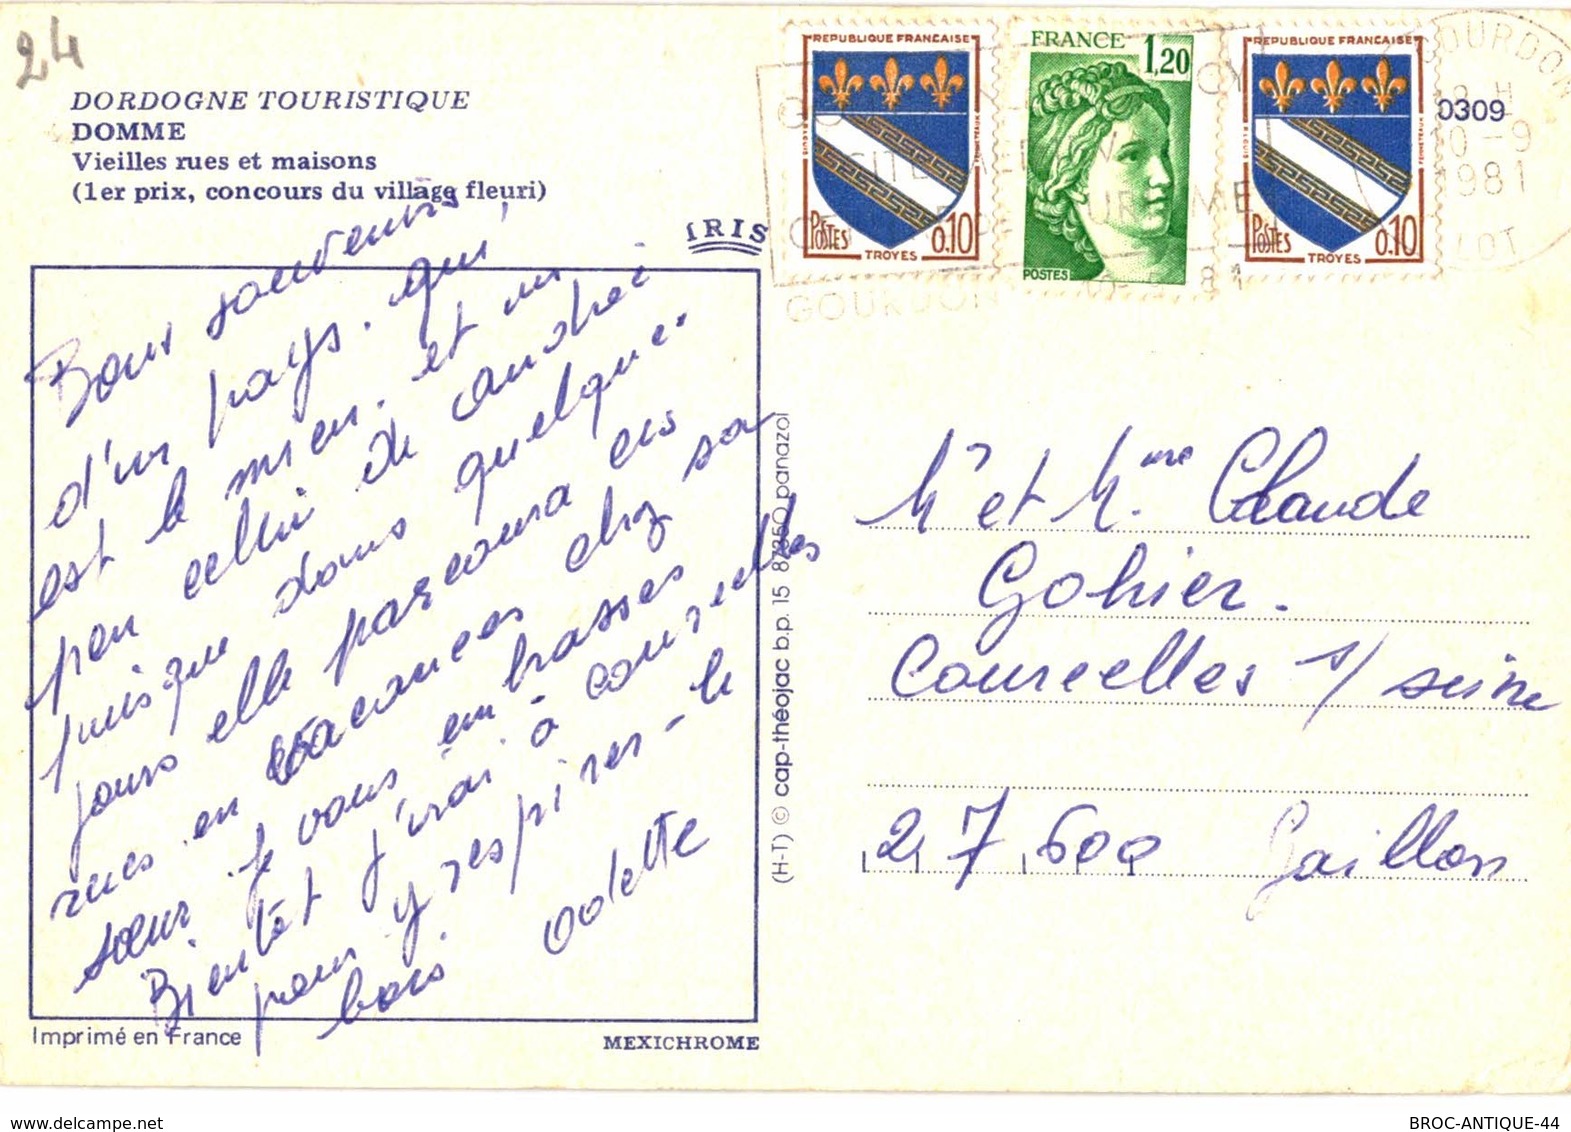 24
DORDOGNE TOURISTIQUE
DOMME
Vieilles rues et maisons
(1er prix, concours du village fleuri)
IRIS
REPUBLIQUE FRANCAISE
POSTES
0,10
TROYES
FRANCE
1,20
POSTES
REPUBLIQUE FRANCAISE
POSTES
0,10
TROYES
0309
GOURDON
10-9
1981
LOT
GOURDON
Bons souvenirs,
d'un pays. qui,
est le mien. et un
peu cellui de andrei
puisque dans quelques
jours elle parcoura ces
rues en vacances chez sa
sœur. je vous embrasses
Bientôt j'irai à courcelles
pour y respirer - le
bois Odette
Mr et Mme Claude
Gohier.
Courcelles s/ seine
27600 Gaillon
(H-T) © cap-théojac b.p. 15 87350 panazol
Imprimé en France
MEXICHROME
delcampe.net
BROC-ANTIQUE-44